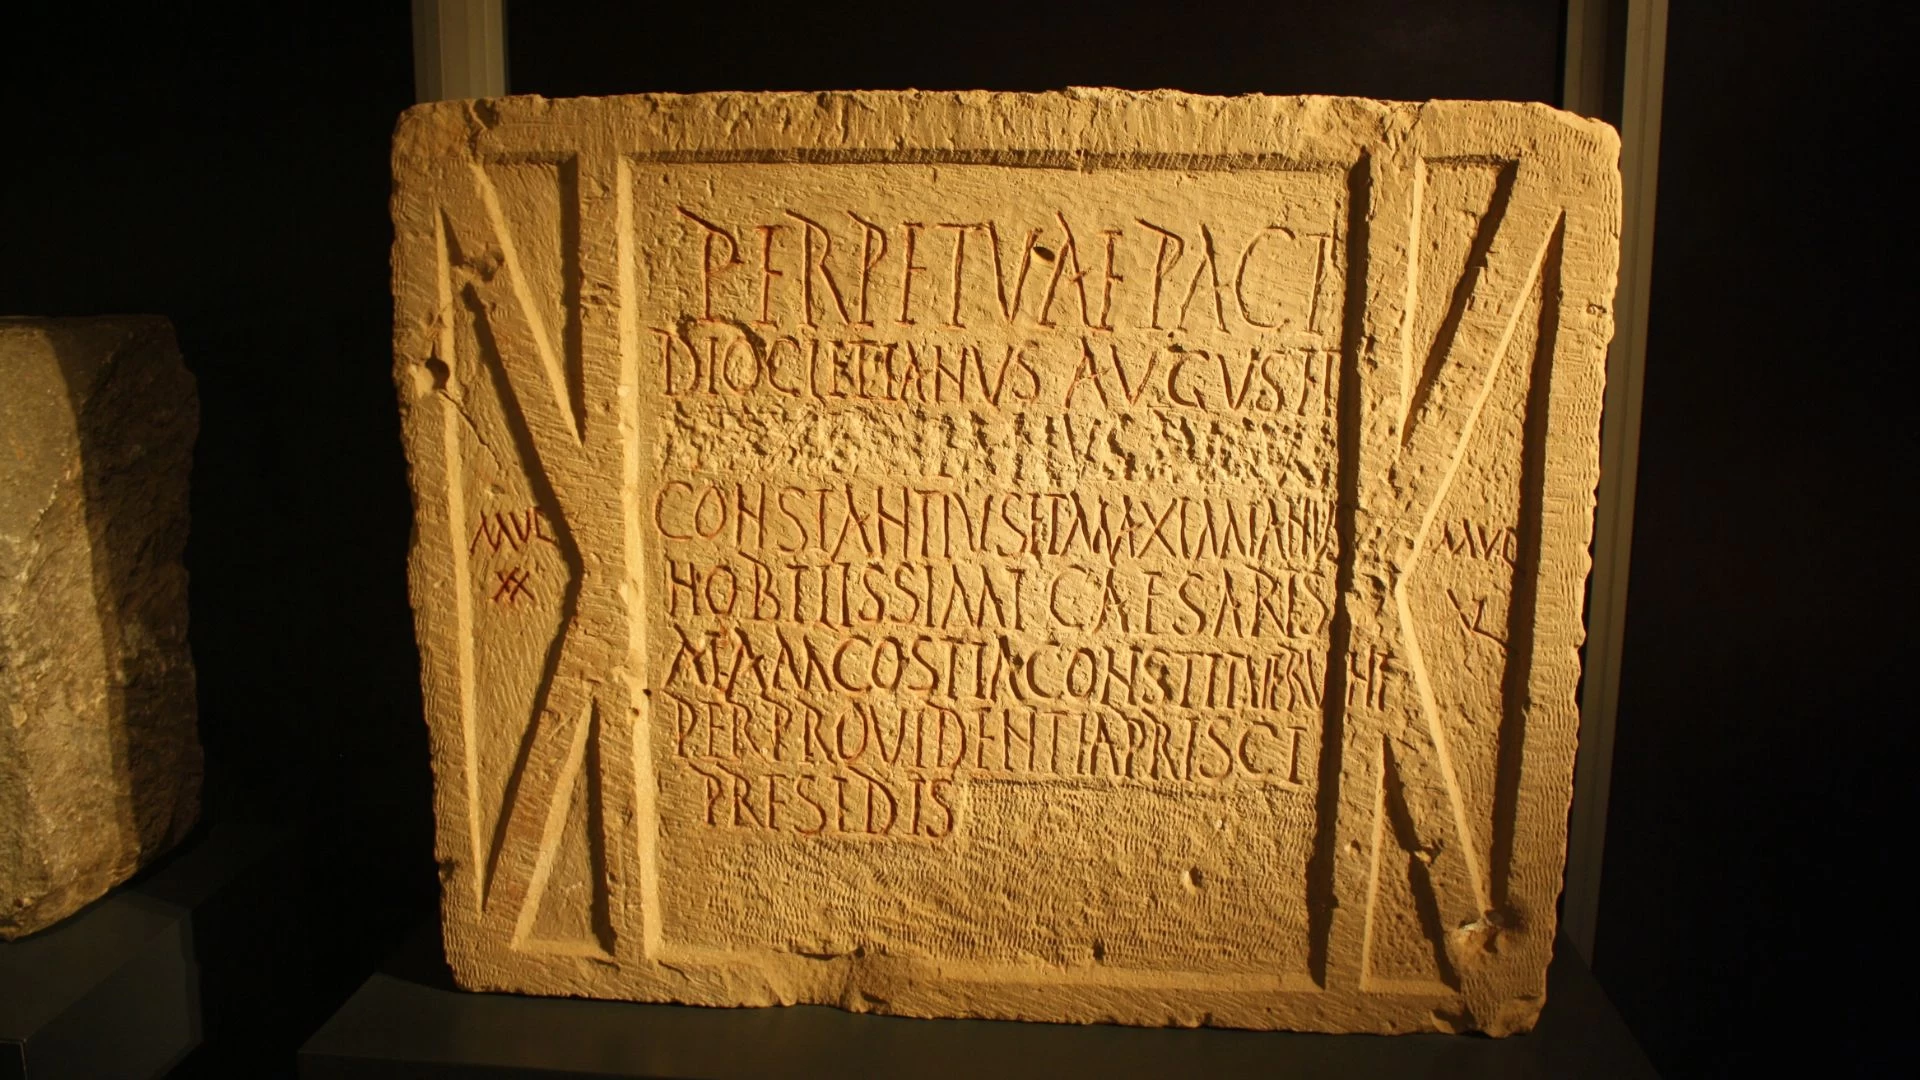 PERPETVAE PACI
DIOCLETIANVS
CONSTANTIVS ET MAXIMIANVS
NOBILISSIMI CAESARES
ALAM COSTIA CONSTITVERVNT
PER PROVIDENTIA PRISCI
PRESEDIS
MVL
XX
MVL
XL